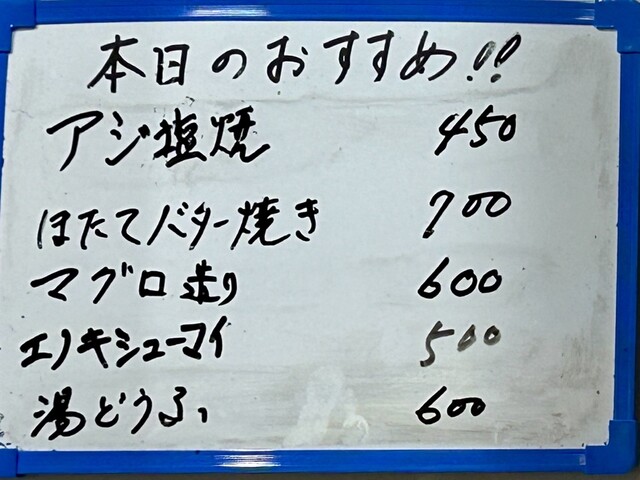 本日のおすすめ!!
アジ塩焼 450
ほたてバター焼き 700
マグロ造り 600
エノキシューマイ 500
湯どうふ 600